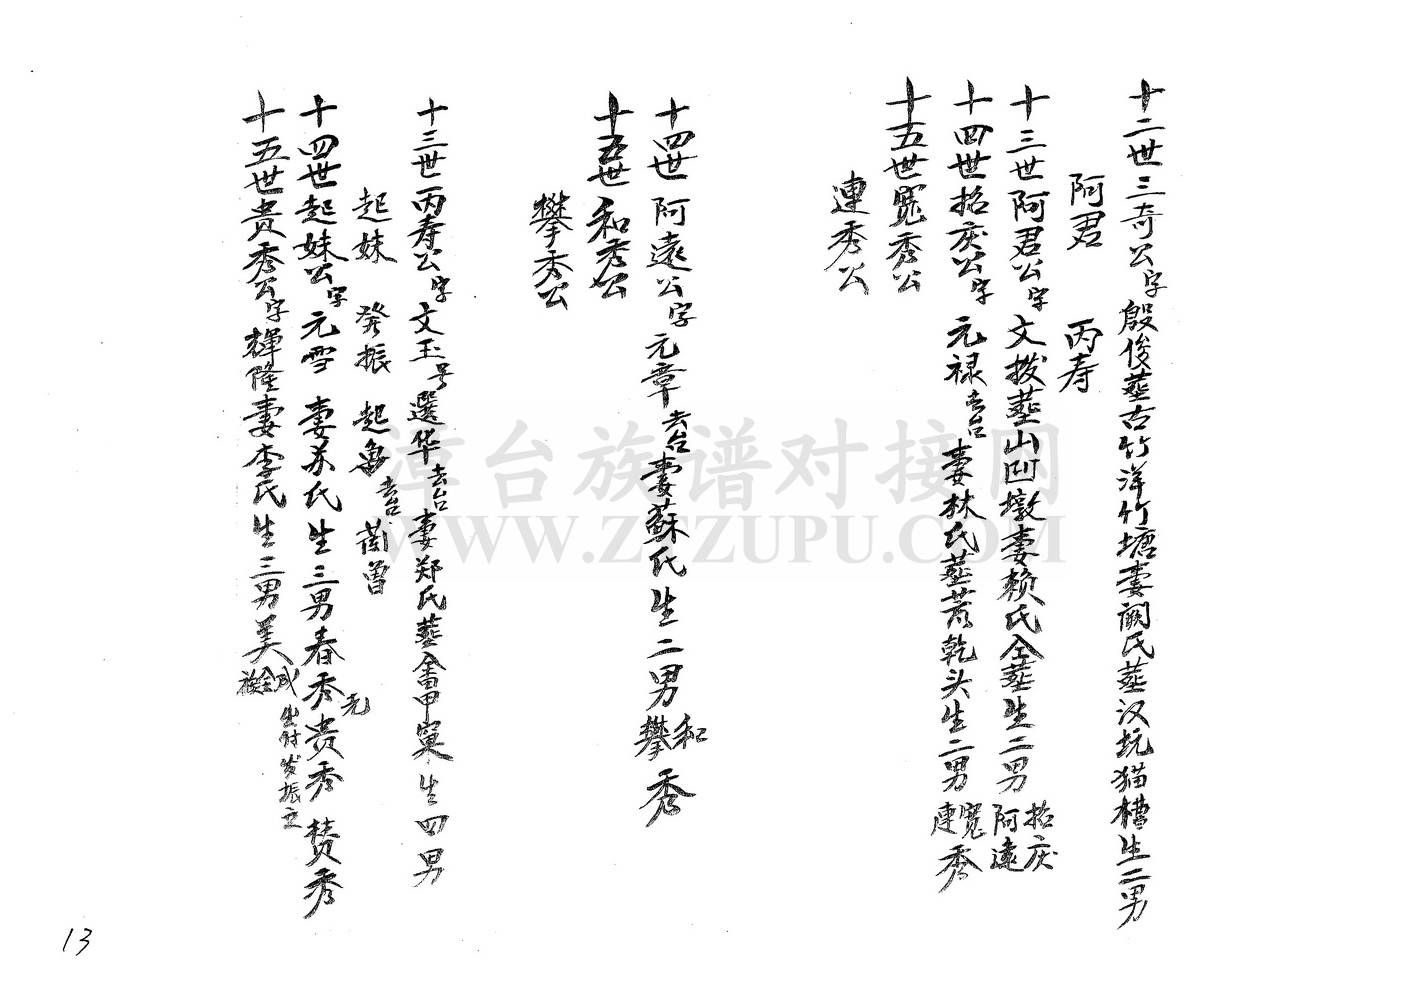 十二世三奇公字殷俊墓古竹洋竹塘妻阙氏墓汉坑猫槽生二男
阿君 丙寿
十三世阿君公字文拨墓山凹墩妻赖氏仝墓生二男招庆阿遠
十四世招庆公字元禄去台妻林氏墓芹乾头生二男寬連秀
十五世寬秀公
連秀公
十四世阿遠公字元章去台妻蘇氏生二男和攀秀
十五世和秀公
攀秀公
十三世丙寿公字文玉号選华去台妻郑氏墓畬甲窠生四男
起妹 発振 起 去台 曽
十四世起妹公字元雪妻苏氏生三男春秀貴秀 賛秀
十五世贵秀公字輝隆妻李氏生三男美
出射发振立
漳台族谱对接网
WWW.ZTZUPU.COM
13